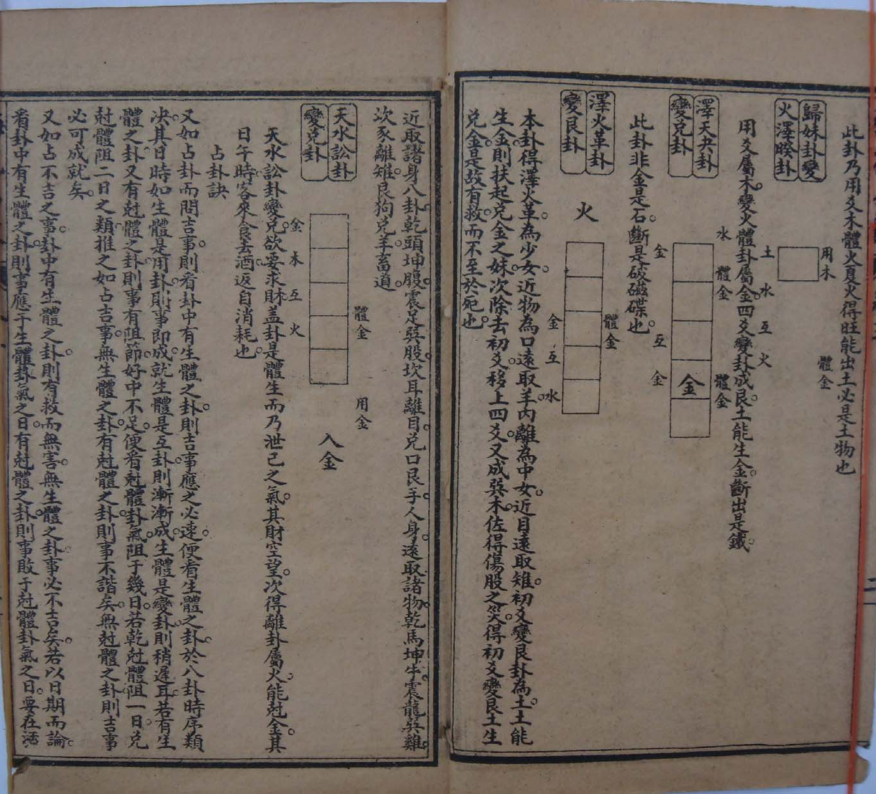 此卦乃用爻木體火負爻得旺能出土必是土物也
歸妹卦變
火澤睽卦
用木
體金
土水互火
用爻屬木變火體卦屬金四爻變卦成艮土能生金斷出是鐵
澤天夬卦
變兌卦
水 體金
金
體金
金 互金
此卦非金是石斷是破磁碟也
澤火革卦
變艮卦
火
體金
金互水
本卦得澤火革為少女近物為口遠取羊內離為中女近目遠取雉初爻變艮卦為土土能
生金則扶起兌金之妹次除去初爻移上四爻又成巽木佐得傷股之災得初爻變艮土生
兌金是故有救而不至於死也
近取諸身八卦乾頭坤腹震足巽股坎耳離目兌口艮手人身遠取諸物乾馬坤牛震龍巽雞
次豕離雉艮狗兌羊畜道
天水訟卦
變兌卦
體金
用金
入金
金木互火
天水訟卦變兌欲要求財蓋卦是體生而乃泄己之氣其財空望次得離卦屬火能尅金其
日午時客來食去酒返自消耗也
占卦訣
又如占卦而問吉事則看卦中有生體之卦則吉事應之必速便看生體之卦於八卦時序類
决其日時如生體是用卦則事即成就生體是互卦則漸漸成生體是變卦則稍遲耳若有生
體之卦又有尅體之卦則事有阻節好中不足便看尅體卦氣阻于幾日若乾尅體阻一日兌
尅體阻二日之類推之如占吉事無生體之卦有尅體之卦則事不諧矣無尅體之卦則吉事
必可成就矣
又如占不吉之事卦中有生體之卦則有救而無害無生體之卦事必不吉矣若以日期而論
看卦中有生體之卦則事應于生體卦氣之日有尅體之卦則事敗于尅體卦氣之日要在活